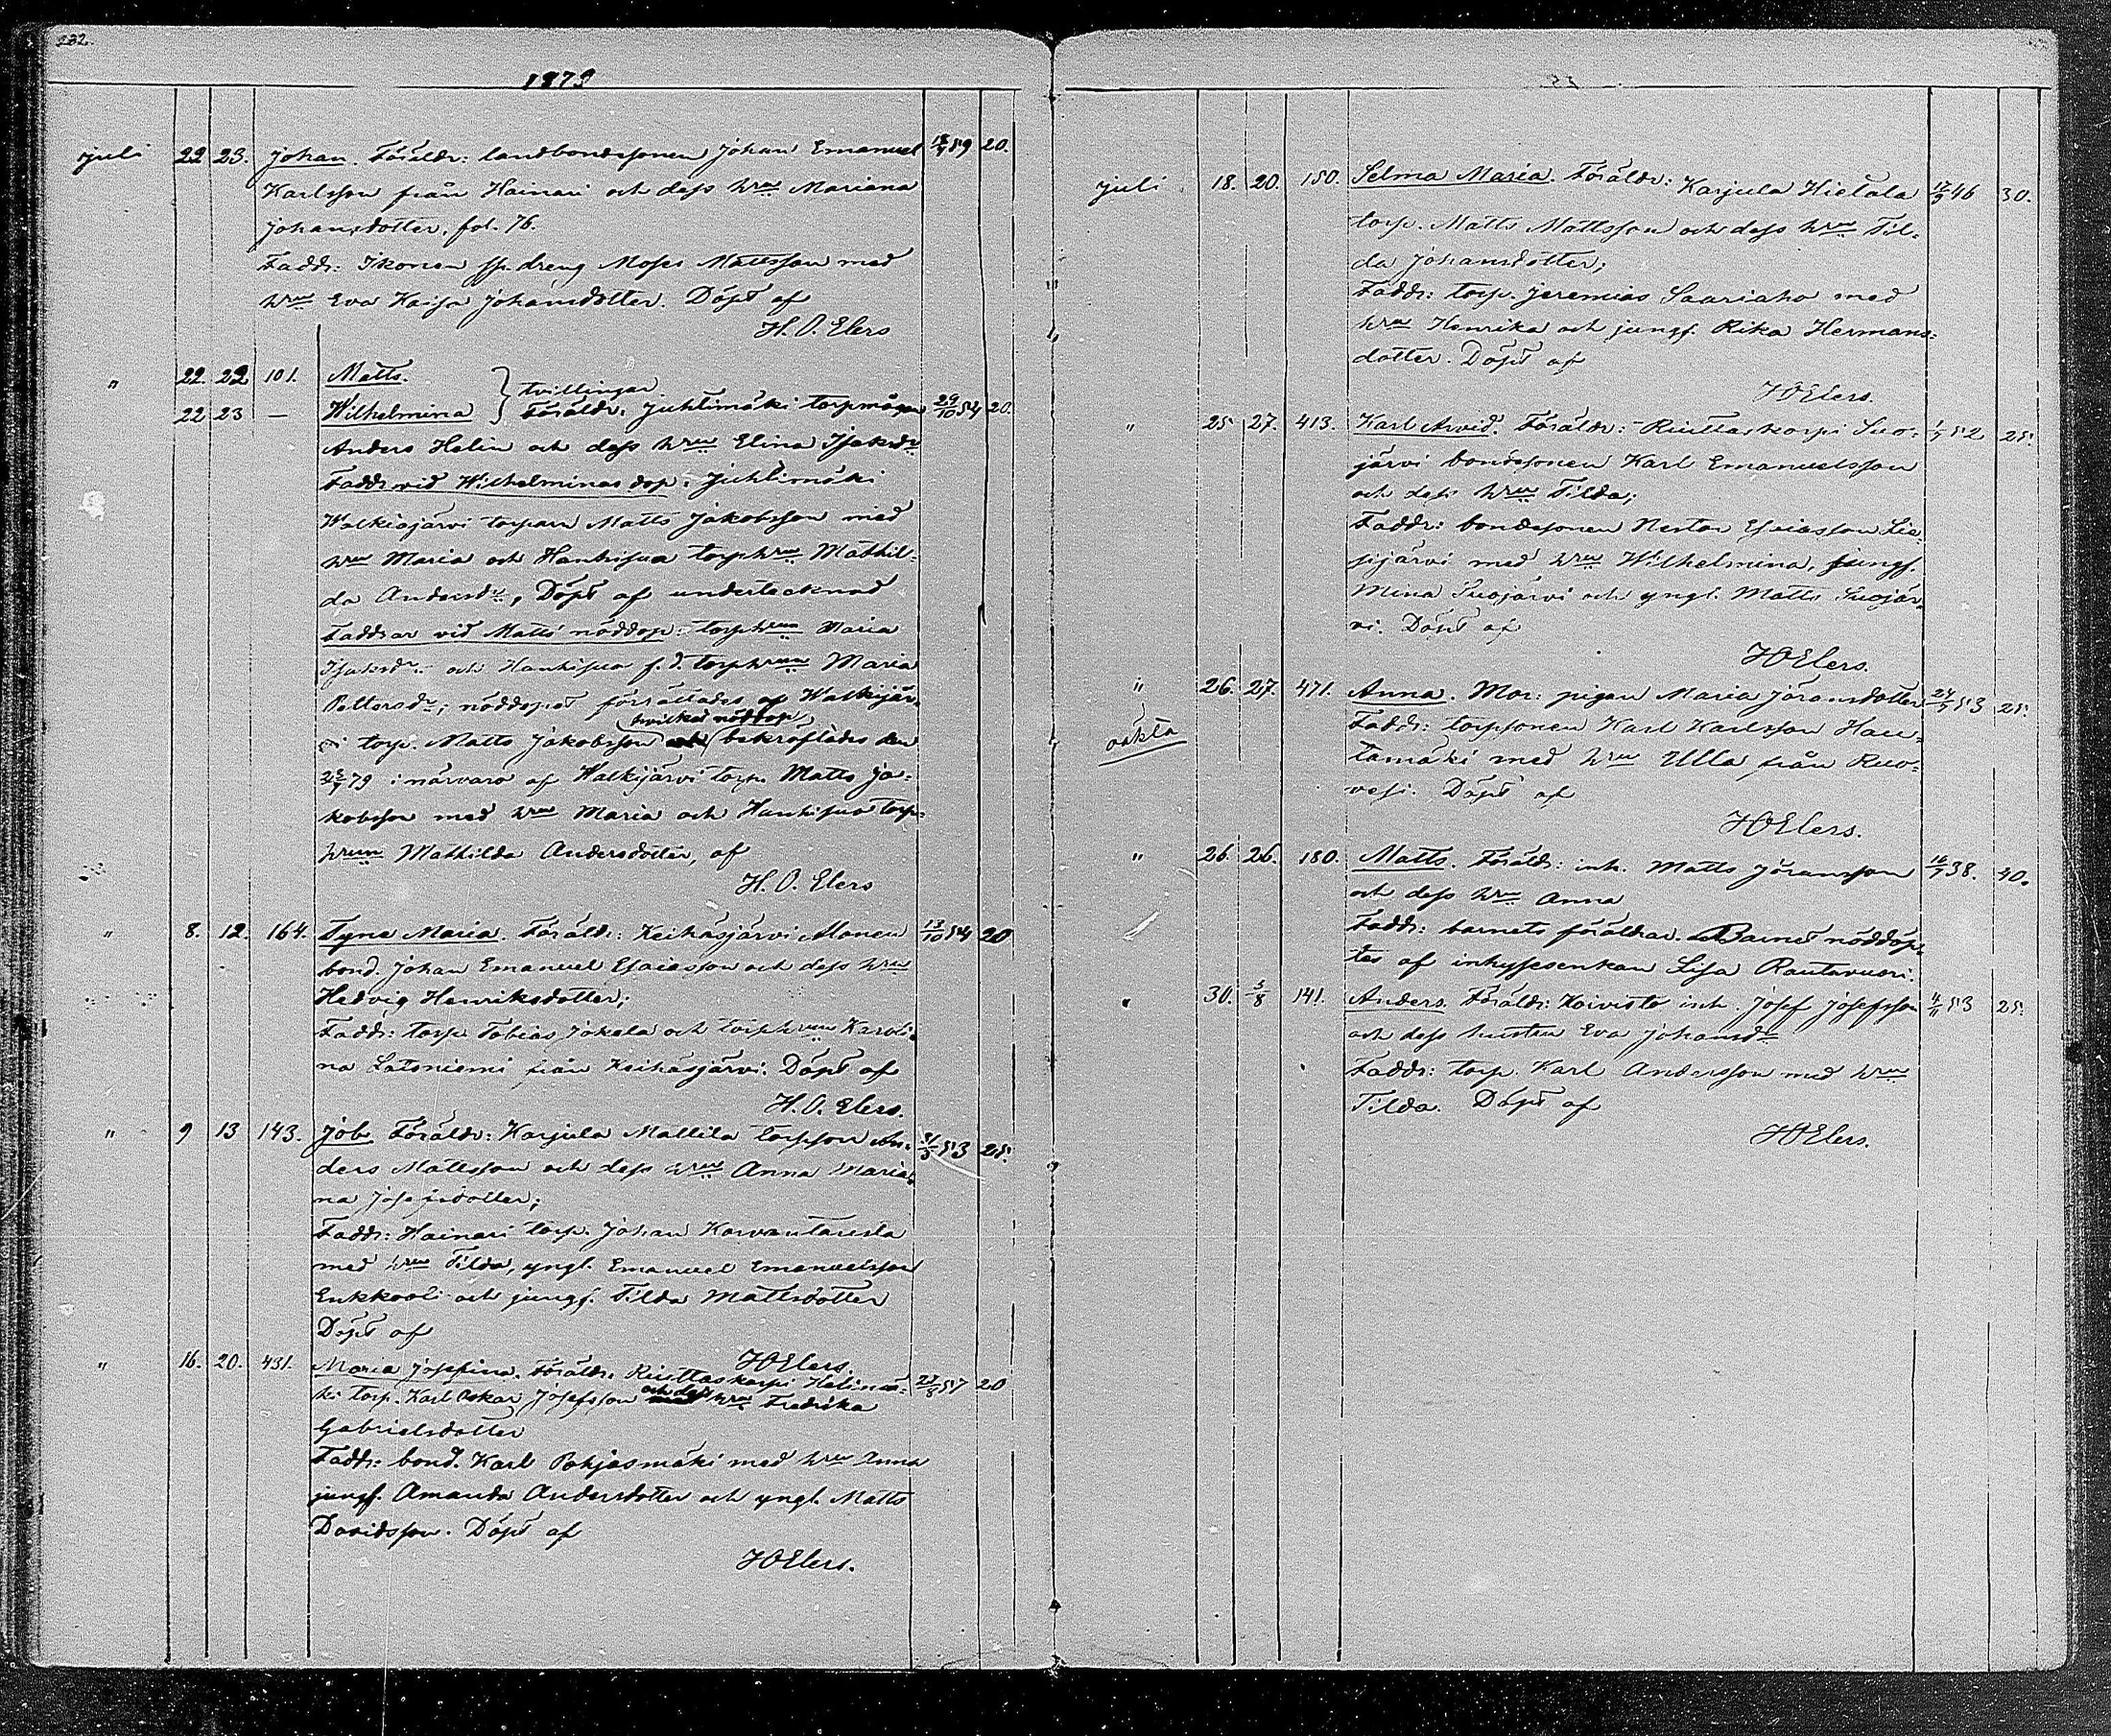 232.
1879
juli 22 23. Johan. Föräldr: landbondesonen Johan Emanuel 18/4 59 20.
Karlsson från Hainari och dess hru Mariana
Johansdotter, fol. 76.
Faddr: Ikonen sp. dreng Moses Mattsson med
hru Eva Kaisa Johansdotter. Döpt af
H. O. Elers
" 22. 22 101. Matts. } tvillingar
22 23 — Wilhelmina Föräldr: Juhtimäki torpmågen 29/10 54 20.
Anders Helin och dess hru Elina Isaksdr
Faddr vid Wilhelminas dop: Juhtimäki
Walkiajärvi torparn Matts Jakobsson med
hru Maria och Hanhisua torphru Mathil-
da Andersdr, Döpt af undertecknad
Faddrar vid Matts' nöddop: torphrun Maria
Isaksdr och Hanhisua f. d. torphrun Maria
Pettersdr; nöddopet förrättades af Walkijär-
vi torp. Matts Jakobsson hvilket nöddop bekräftades den
79 i närvaro af Walkijärvi torp. Matts Ja-
kobsson med hru Maria och Hanhisuo torp-
hrun Mathilda Andersdotter, af
H. O. Elers
" 8. 12. 164. Tyna Maria. Föräldr: Keihäsjärvi Alonen 13/10 54 20
bond. Johan Emanuel Esaiasson och dess hru
Hedvig Henriksdotter;
Faddr: torp. Tobias Jokela och torphrun Karoli-
na Latoniemi från Keihäsjärvi. Döpt af
H. O. Elers.
" 9 13 143. Job Föräldr: Karjula Mattila torpson An- 53 25.
ders Mattsson och dess hru Anna Maria-
na Josefsdotter;
Faddr: Hainari torp. Johan Korvantausta
med hru Tilda, yngl. Emanuel Emanuelsson
Enkkooli och jungf. Tilda Mattsdotter
Döpt af
HOElers.
" 16. 20. 431. Maria Josefina. Föräldr. Riuttaskorpi Helinmä- 27/8 57 20
ki torp. Karl Oskar Josefsson och dess hru Fredrika
Gabrielsdotter
Faddr: bond. Karl Pohjasmäki med hru Anna
jungf. Amanda Andersdotter och yngl. Matts
Davidsson. Döpt af
HOElers.
juli 18. 20. 150. Selma Maria. Föräldr: Karjula Hietala 46 30.
torp. Matts Mattsson och dess hru Til-
da Johansdotter;
Faddr: torp. Jeremias Saariaho med
hru Henrika och jungf. Rika Hermans-
dotter. Döpt af
HOElers.
" 25 27. 413. Karl Arvid. Föräldr: Riuttaskorpi Suo- 52 25.
järvi bondesonen Karl Emanuelsson
och dess hru Tilda;
Faddr: bondesonen Nestor Esaiasson Lie-
sijärvi med hru Wilhelmina, jungf.
Mina Suojärvi och yngl. Matts Suojär-
vi. Döpt af
HOElers.
" 26. 27. 471. Anna. Mor: pigan Maria Jöransdotter 53 25.
oäkta
Faddr: torpsonen Karl Karlsson Hau-
tamäki med hru Ulla från Ruo-
vesi. Döpt af
HOElers.
" 26. 26. 180. Matts. Föräldr: inh. Matts Jöransson 38. 40.
och dess hru Anna
Faddr: barnets föräldrar. Barnet nöddöp-
tes af inhysesenkan Lisa Rautavuori.
" 30. 3/8 141. Anders. Föräldr: Koivisto inh. Josef Josefsson 4/11 53 25.
och dess hustru Eva Johansdr
Faddr: torp. Karl Andersson med hru
Tilda. Döpt af
HOElers.